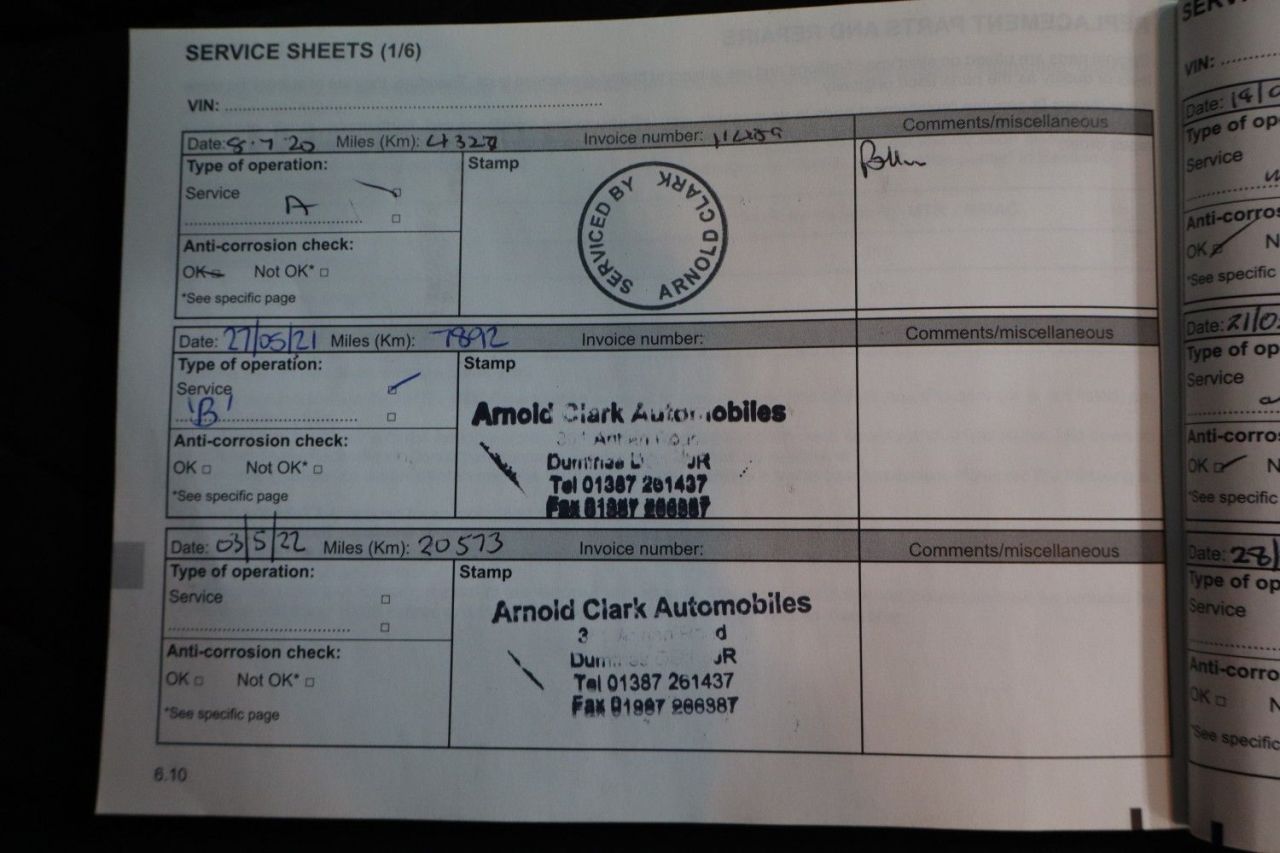 SERVICE SHEETS (1/6)
VIN:
Date: 8.7.20 Miles (Km): Invoice number:
Comments/miscellaneous
Type of operation:
Service
A
Stamp
SERVICED BY
ARNOLD CLARK
Anti-corrosion check:
OK Not OK*
*See specific page
Date: 27/05/21 Miles (Km): 7892 Invoice number:
Comments/miscellaneous
Type of operation:
Service
'B'
Stamp
Arnold Clark Automobiles
Tel 01387 261437
Anti-corrosion check:
OK Not OK*
*See specific page
Date: 03/5/22 Miles (Km): 20573 Invoice number:
Comments/miscellaneous
Type of operation:
Service
Stamp
Arnold Clark Automobiles
Tel 01387 261437
Anti-corrosion check:
OK Not OK*
*See specific page
6.10
VIN:
Date:
Type of op
Service
Anti-corros
OK N
*See specific
Date: 21/0
Type of op
Service
Anti-corro
OK N
*See specific
Date: 28/
Type of op
Service
Anti-corro
OK N
*See specific